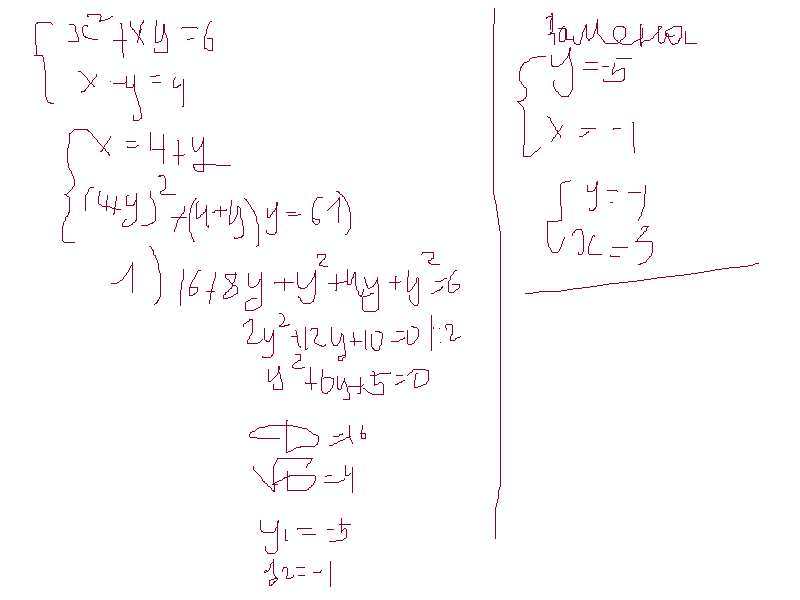 x²+xy=6
x-y=4
x=4+y
(4+y)²+(4+y)y=6 1)
1) 16+8y+y²+4y+y²=6
2y²+12y+10=0 |:2
y²+6y+5=0
D=16
√D=4
y1=-5
y2=-1
Замена
y=-5
x=-1
y=-1
x=3